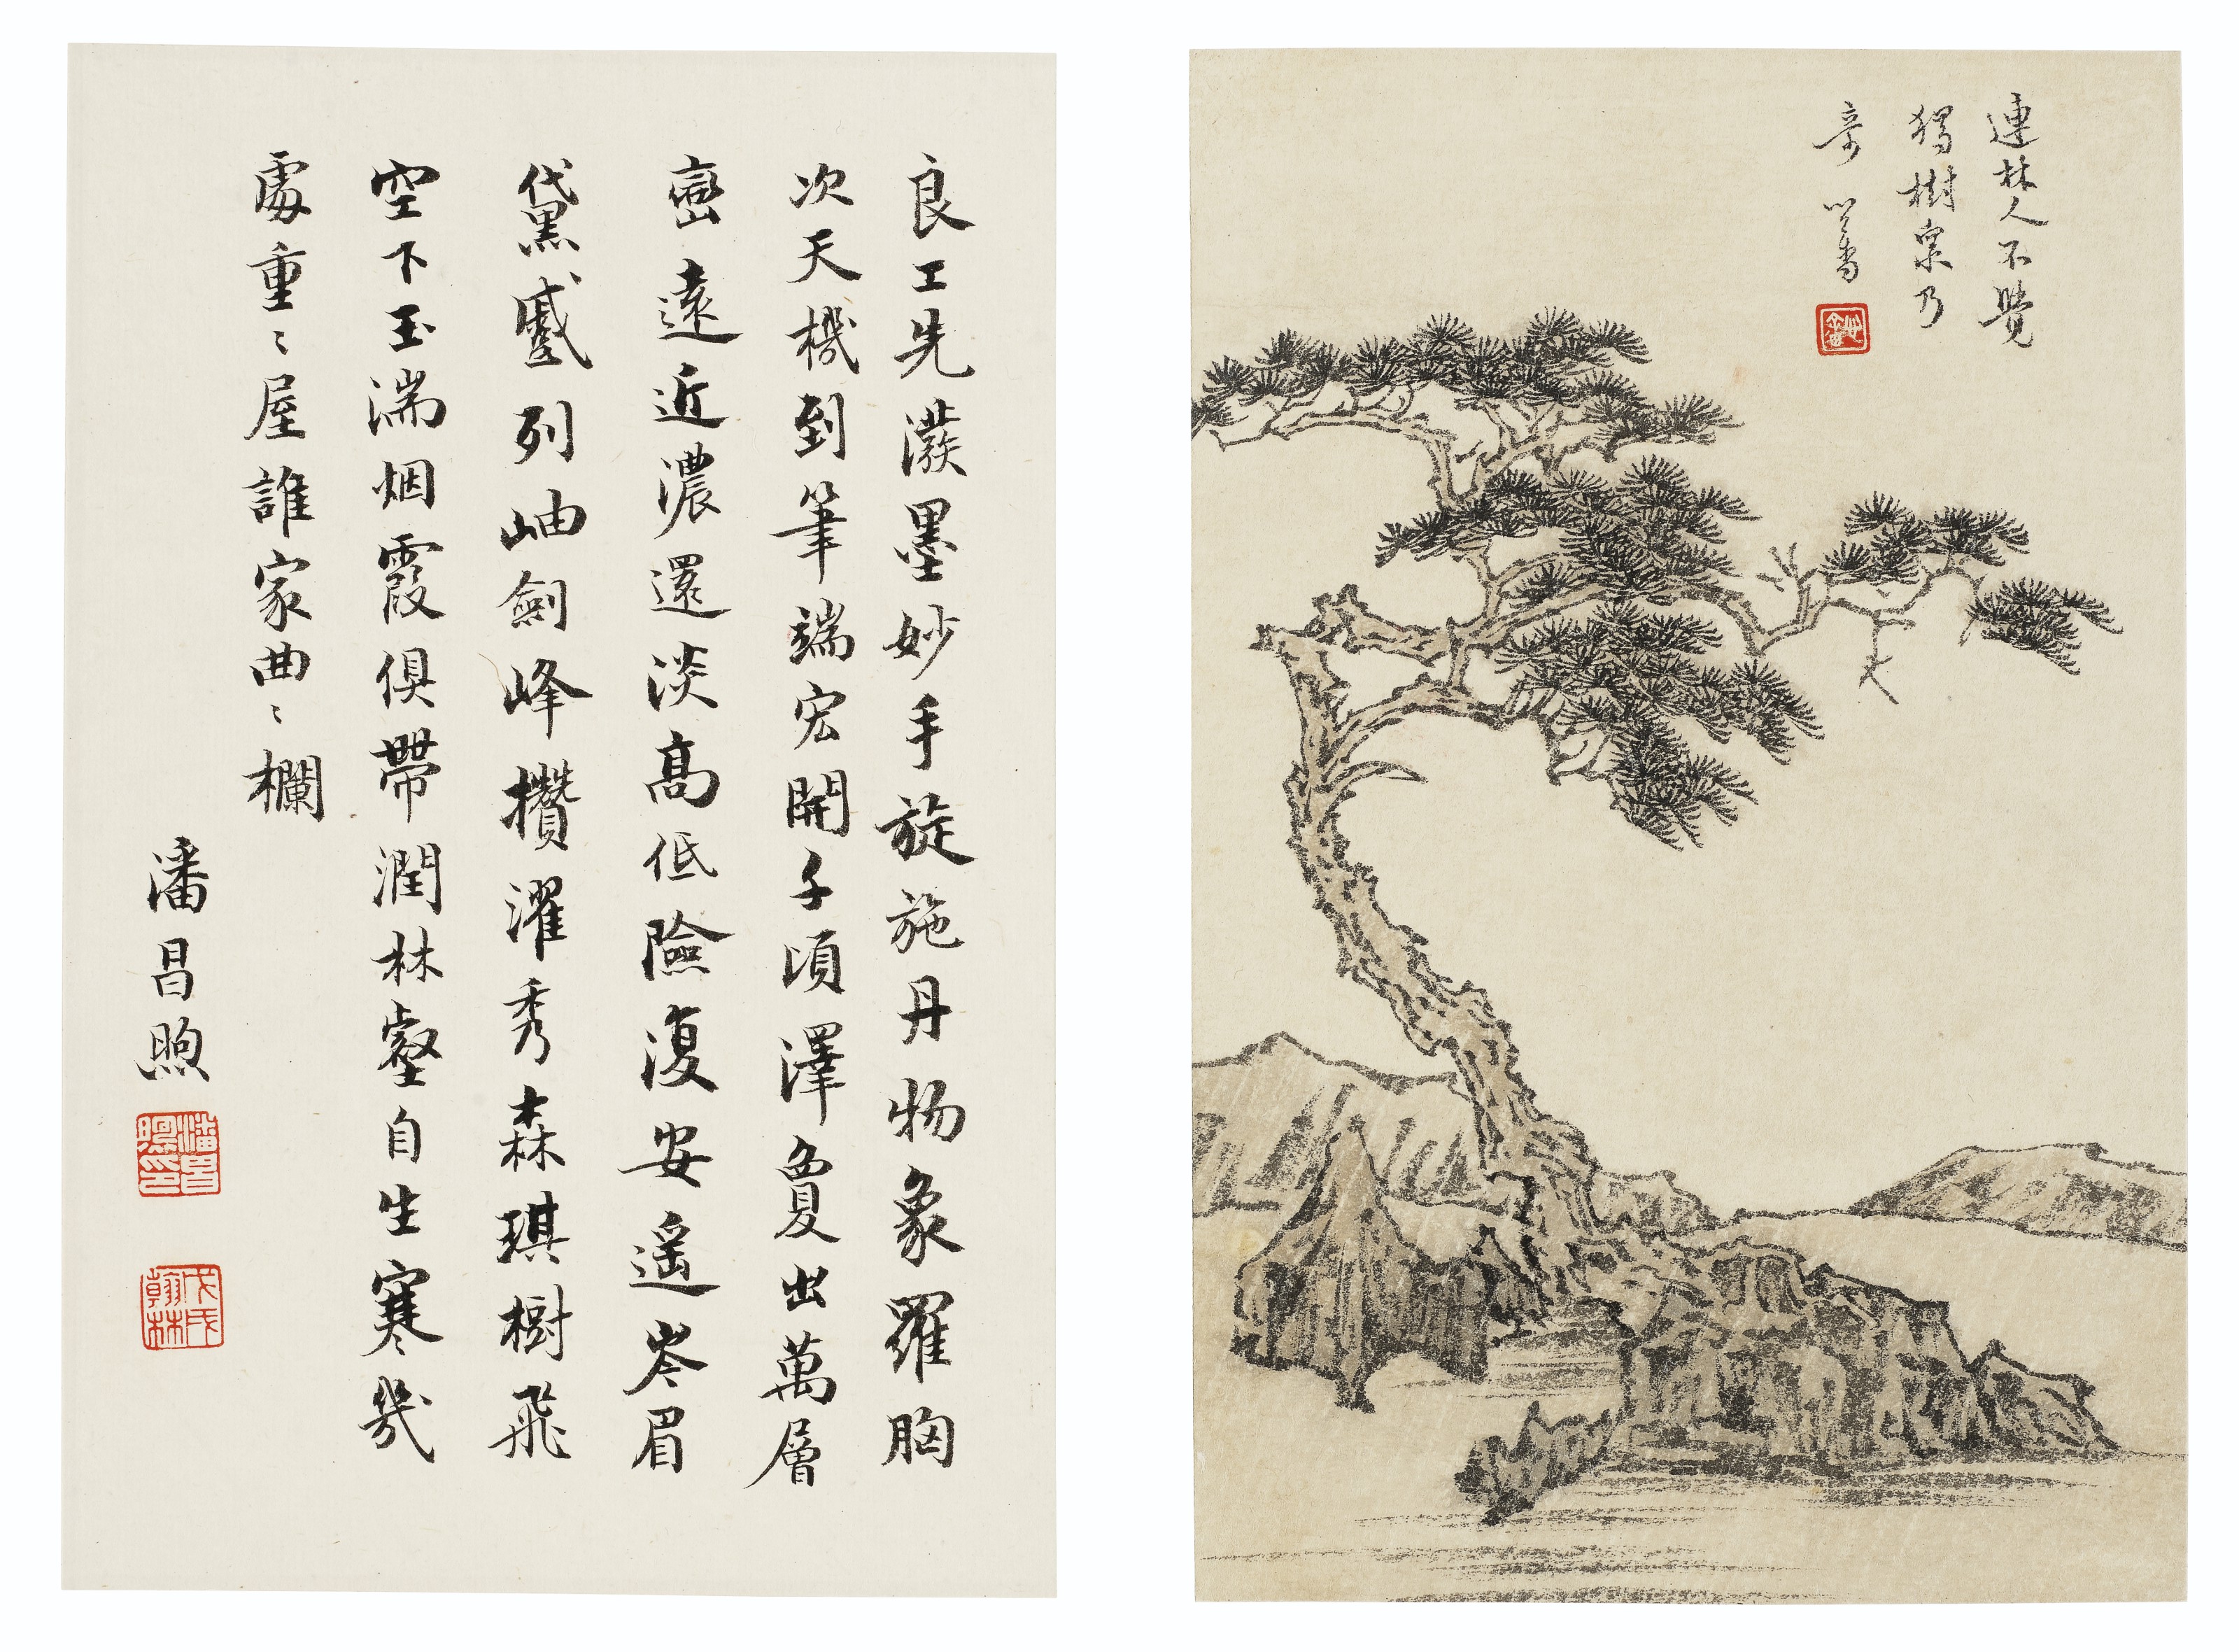 連林人不覺
獨樹衆乃
奇 心畬
良工先潑墨妙手旋施丹物象羅胸
次天機到筆端宏開千頃澤夐出萬層
巒遠近濃還淡高低險復安遥岑眉
黛蹙列岫劍峰攢濯秀森琪樹飛
空下玉湍烟霞俱帶潤林壑自生寒幾
處重〻屋誰家曲〻欄
潘昌煦
潘昌煦印
戊戌翰林